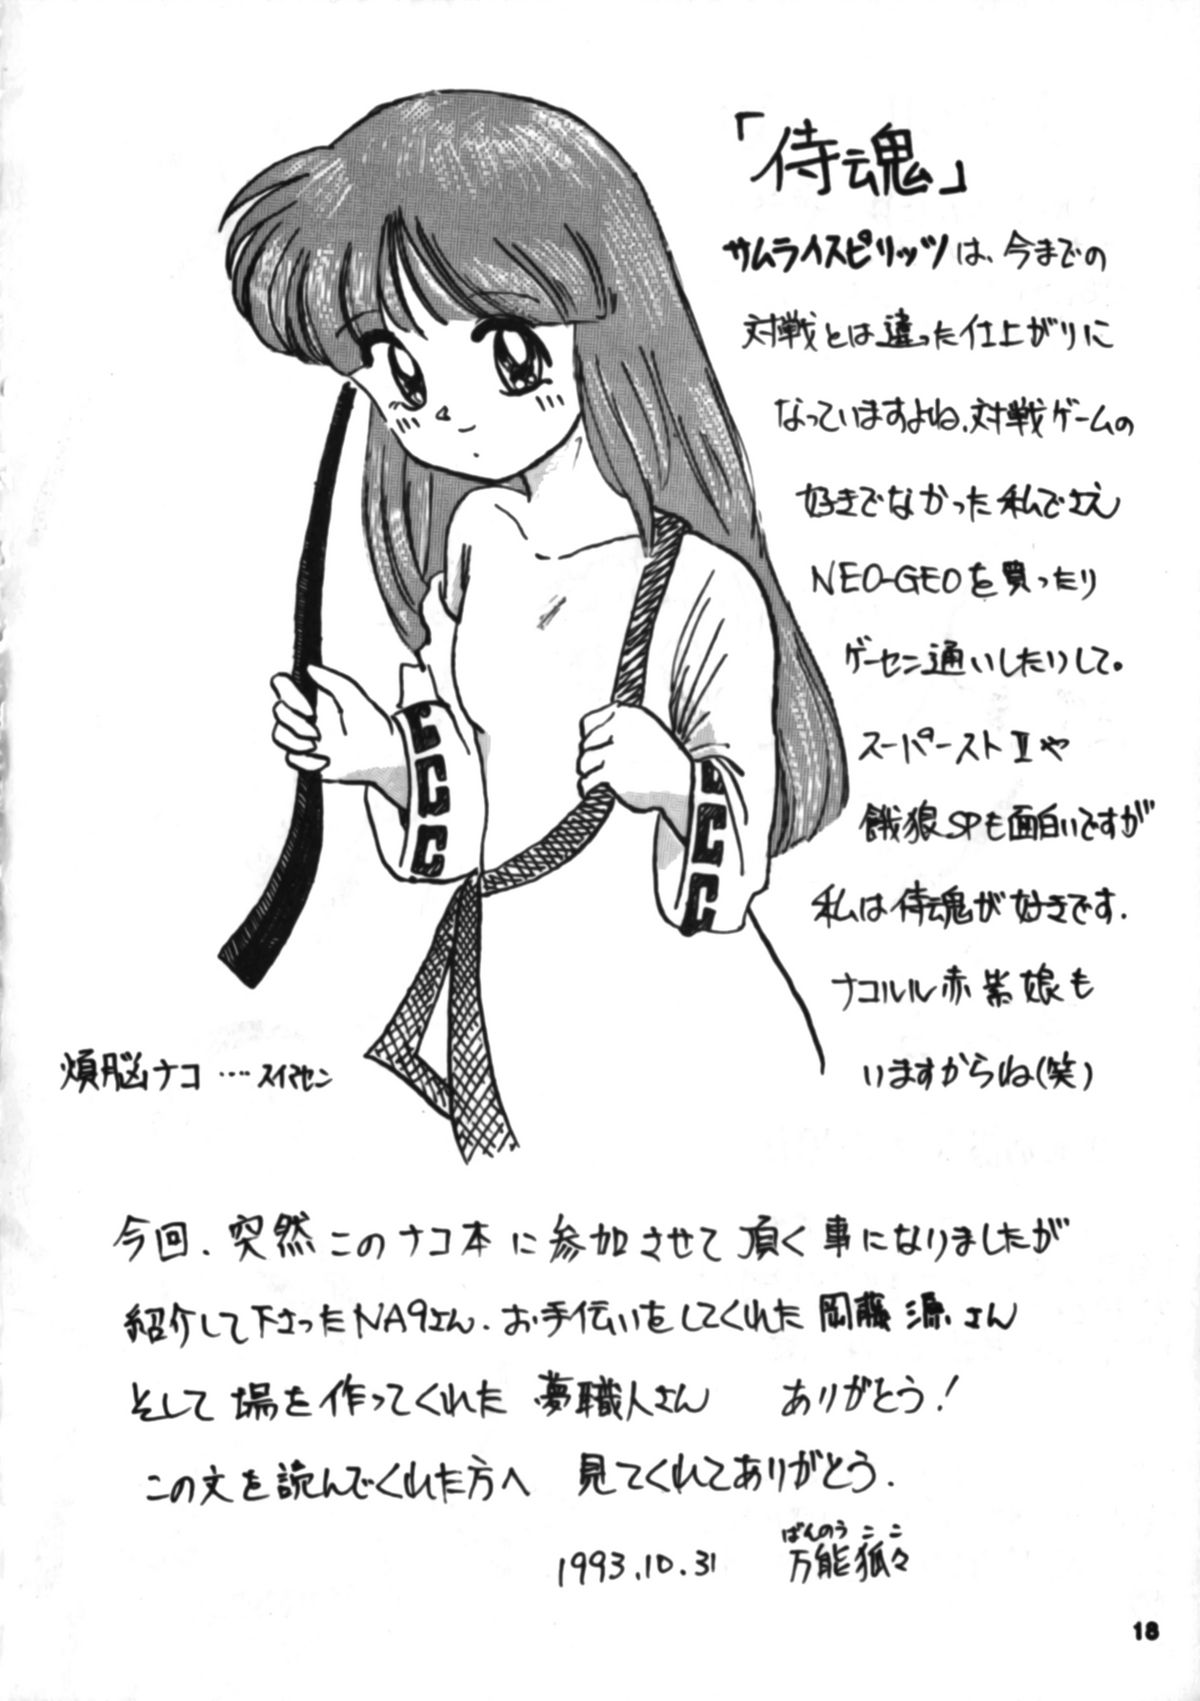 「侍魂」
サムライスピリッツは、今までの
対戦とは違った仕上がりに
なっていますよね、対戦ゲームの
好きでなかった私でさえ
NEO-GEOを買ったり
ゲーセン通いしたりして。
スーパーストⅡや
餓狼SPも面白いですが
私は侍魂が好きです.
ナコルル赤紫娘も
いますからね(笑)
煩脳ナコ ‥‥スイマセン
今回、突然このナコ本に参加させて頂く事になりましたが
紹介して下さったNA9さん、お手伝いをしてくれた岡藤源さん
そして場を作ってくれた夢職人さん ありがとう!
この文を読んでくれた方へ 見てくれてありがとう.
ばんのうここ
1993.10.31 万能狐々
18